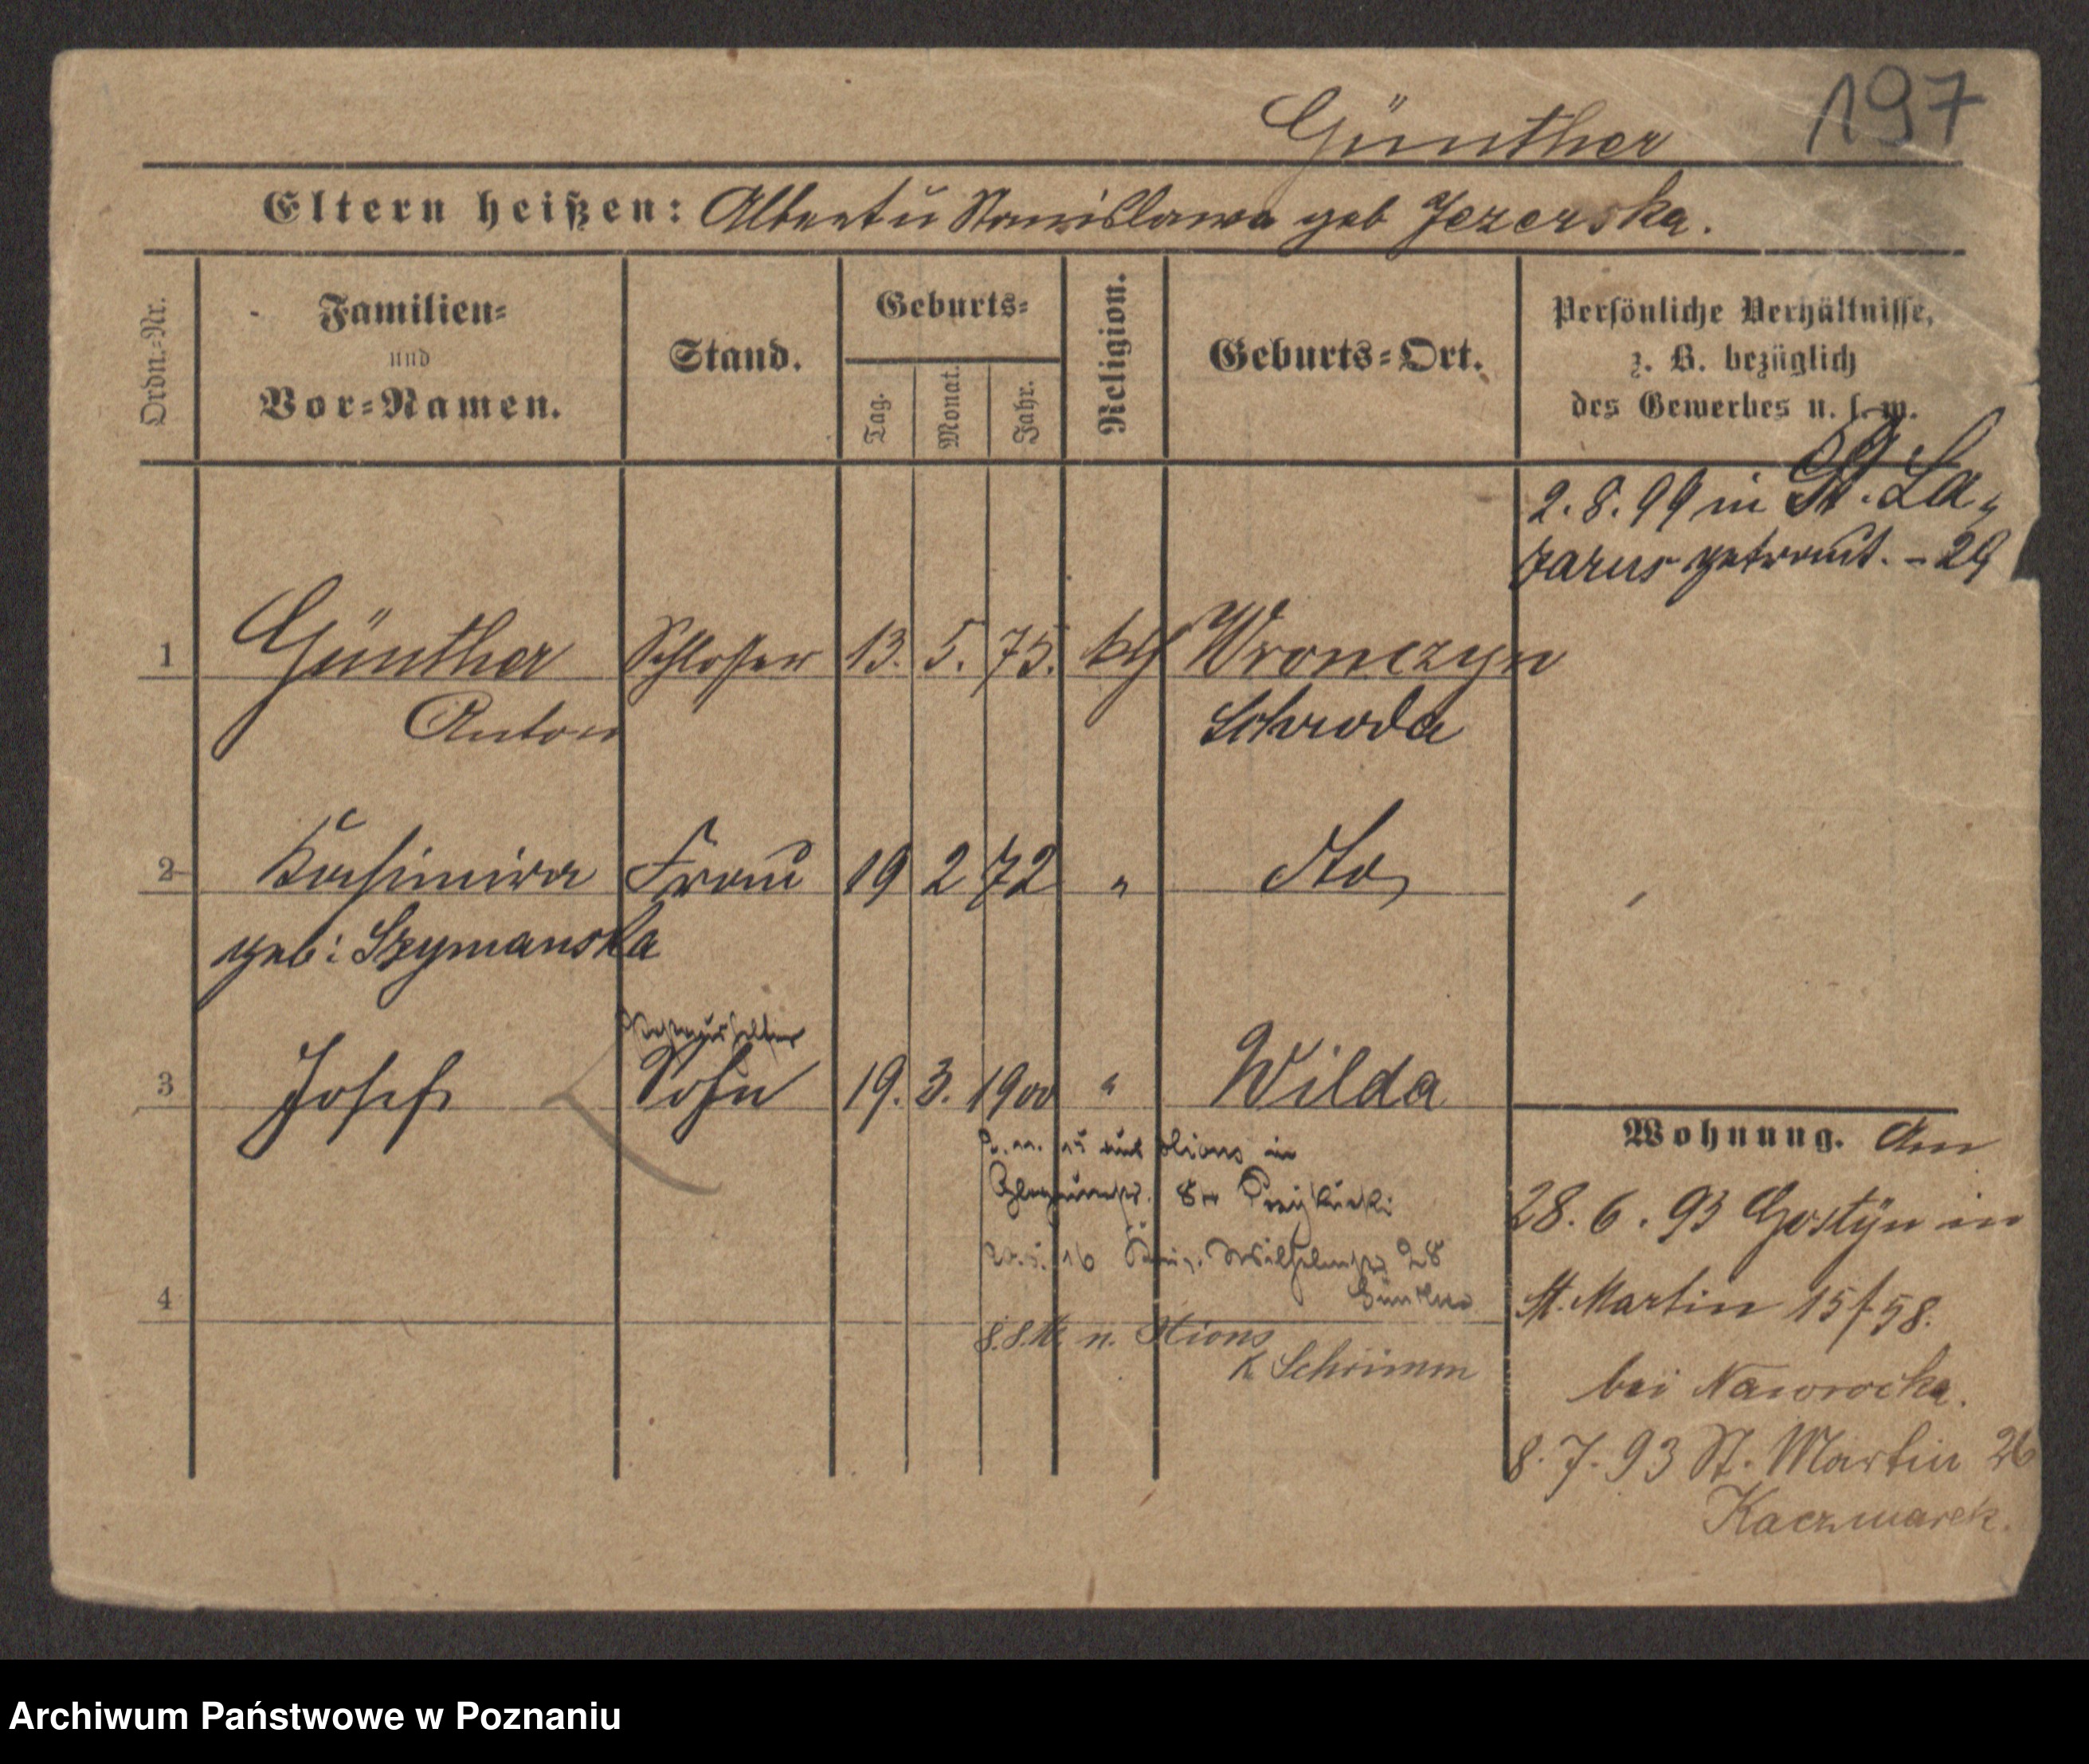 197
Günther
Eltern heißen: Albert u Stanislawa geb Jezerska.
Ordn.-Nr.
Familien-
und
Vor-Namen.
Stand.
Geburts-
Tag.
Monat.
Jahr.
Religion.
Geburts-Ort.
Persönliche Verhältnisse,
z. B. bezüglich
des Gewerbes u. s. w.
2.8.99 in St. La-
zarus getraut. - 29
1 Günther Schlosser 13. 5. 75. kth Wronczyn
Anton Schroda
2 Kasimira Frau 19 2 72 " dto
geb: Szymanska
3 Josef Sohn 19. 3. 1900 " Wilda
in
Wilhelmstr 28
Günther
4
n. Xions
K Schrimm
Wohnung. Am
28. 6. 93 Gostÿn in
St. Martin 15/58.
bei Nawrocka.
8. 7. 93 St. Martin 26
Kaczmarek.
Archiwum Państwowe w Poznaniu